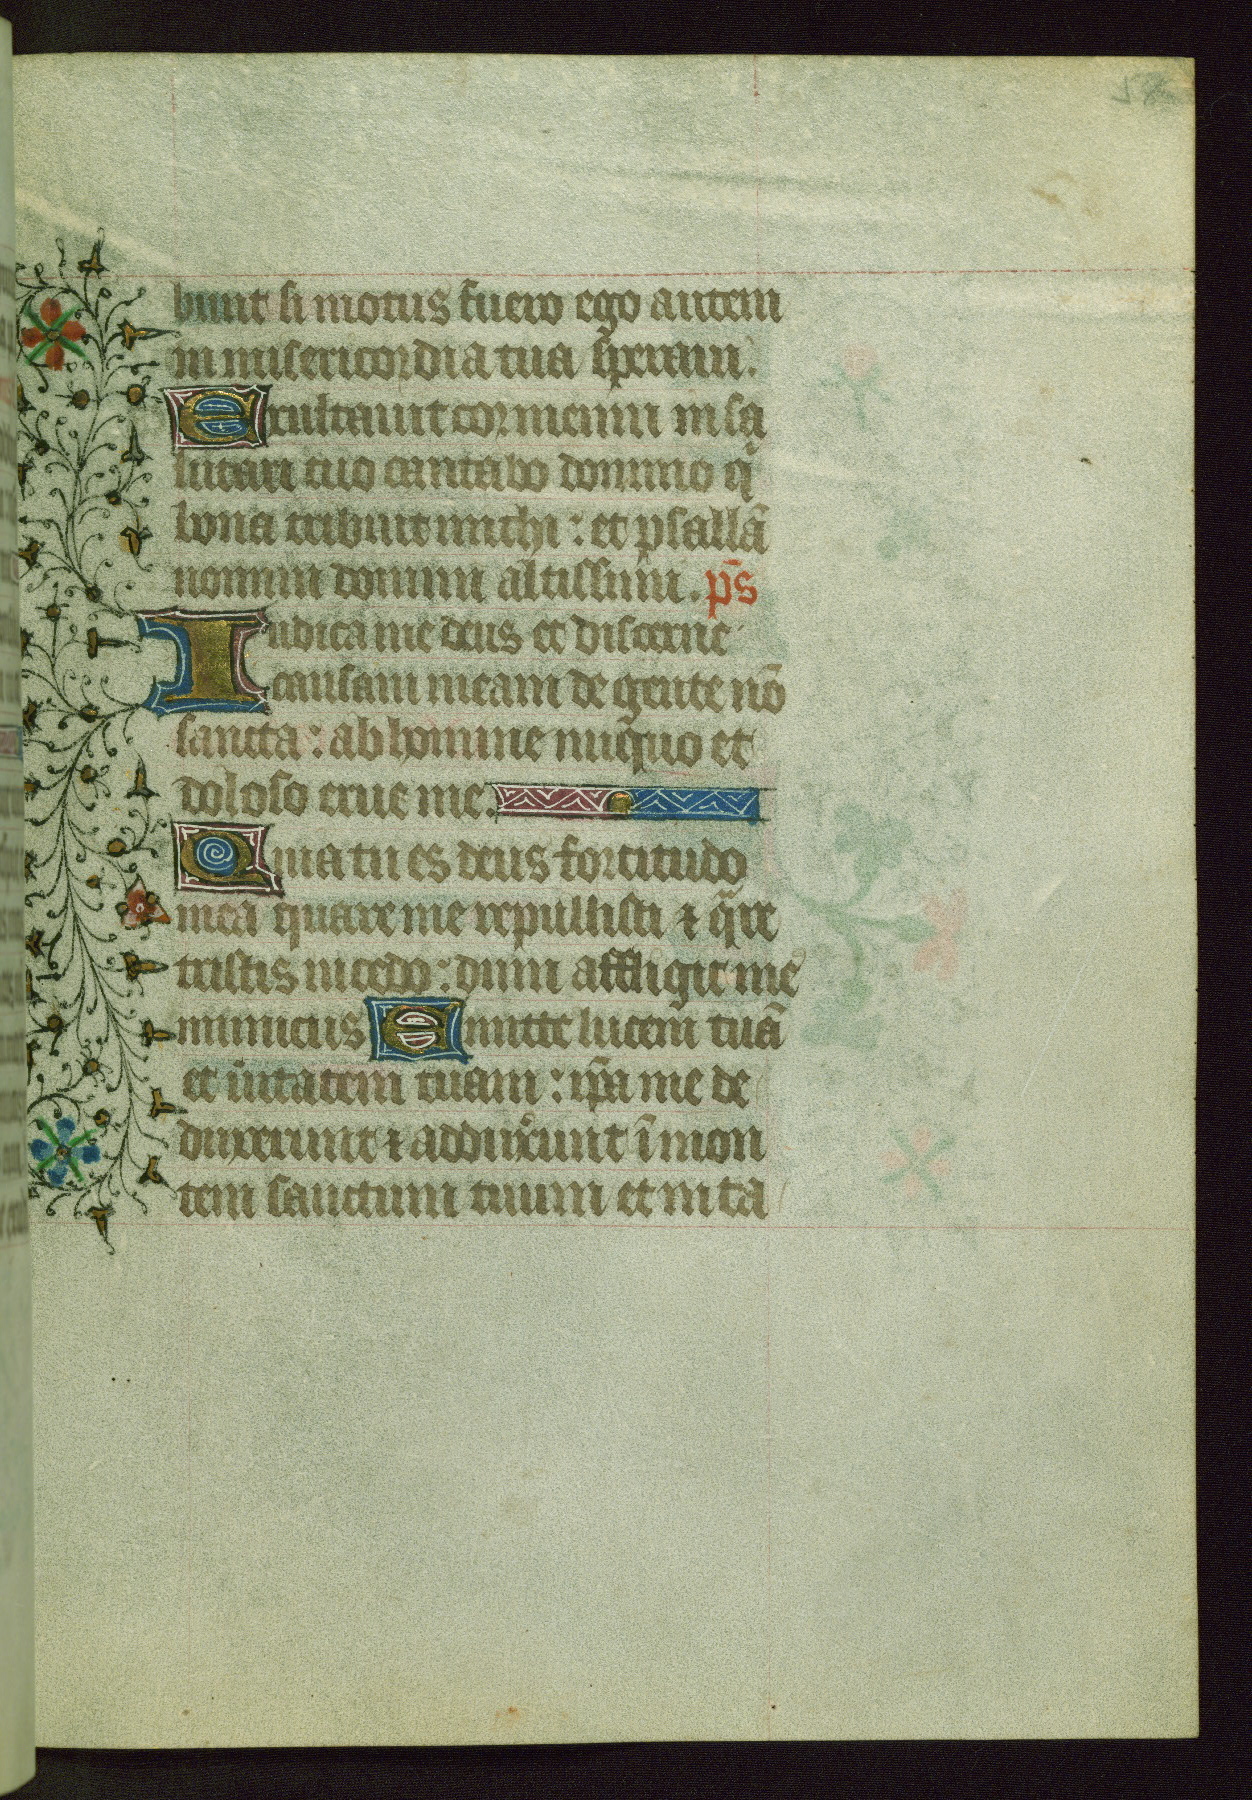 bunt si motus fuero ego autem
in misericordia tua sp̄eraui.
Exultauit cor meum in sa
lutari tuo cantabo domino q̄
bona tribuit michi : et psallā
nomini domini altissimi . p̄s
Iudica me deus et discerne
causam meam de gente nō
sancta : ab homine iniquo et
doloso erue me.
Quia tu es deus fortitudo
mea quare me repulisti ⁊ q̄re
tristis incedo : dum affligit me
inimicus Emitte lucem tuā
et ūitatem tuam : ip̄a me de
duxerunt ⁊ adduxerunt ī mon
tem sanctum tuum et in ta